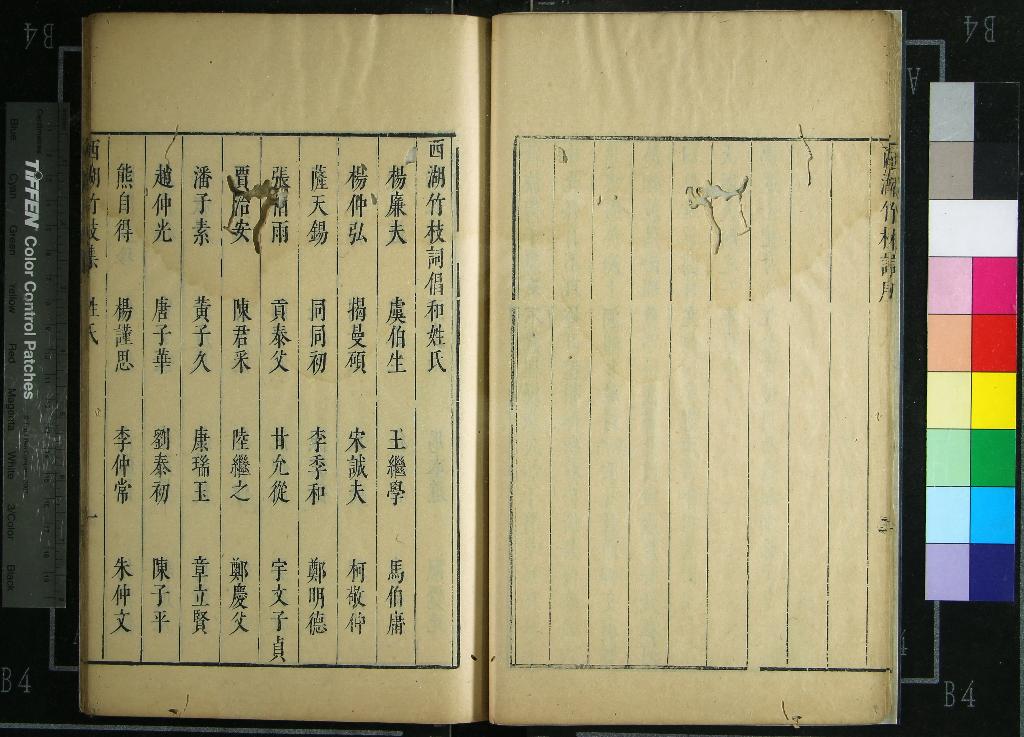 西湖竹枝詞倡和姓氏
楊廉夫 虞伯生 王繼學 馬伯庸
楊仲弘 揭曼碩 宋誠夫 柯敬仲
薩天錫 同同初 李季和 鄭明德
張伯雨 貢泰父 甘允從 宇文子貞
賈治安 陳君采 陸繼之 鄭慶父
潘子素 黃子久 康瑞玉 章立賢
趙仲光 唐子華 劉泰初 陳子平
熊自得 楊謹思 李仲常 朱仲文
西湖竹枝集 姓氏 一
TIFFEN Color Control Patches
Blue Cyan Green Yellow Red Magenta White 3/Color Black
B4
B4
B4
B4
A